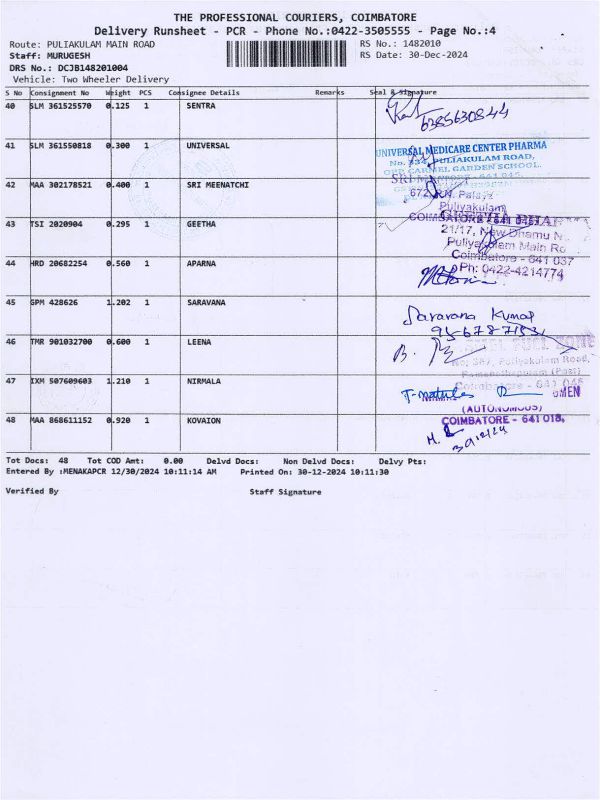 THE PROFESSIONAL COURIERS, COIMBATORE
Delivery Runsheet - PCR - Phone No.:0422-3505555 - Page No.:4
Route: PULIAKULAM MAIN ROAD RS No.: 1482010
Staff: MURUGESH RS Date: 30-Dec-2024
DRS No.: DCJB148201004
Vehicle: Two Wheeler Delivery
S No Consignment No Weight PCS Consignee Details Remarks Seal & Signature
40 SLM 361525570 0.125 1 SENTRA
6385630844
41 SLM 361550818 0.300 1 UNIVERSAL
UNIVERSAL MEDICARE CENTER PHARMA
PULIAKULAM ROAD,
OPP CARMEL GARDEN SCHOOL.
42 MAA 302178521 0.400 1 SRI MEENATCHI
Puliyakulam
COIMBATORE
43 TSI 2020904 0.295 1 GEETHA
21/17, New Dhamu N
Puliyakulam Main Ro
Coimbatore - 641 037
Ph: 0422-4214774
44 HRD 20682254 0.560 1 APARNA
45 GPM 428626 1.202 1 SARAVANA
Saravana Kumar
46 TMR 901032700 0.600 1 LEENA
No; 387, Puliyakulam Road,
Ramanathapuram (Post)
Coimbatore - 641 045
47 IXM 507609603 1.210 1 NIRMALA
OMEN
(AUTONOMOUS)
COIMBATORE - 641 018.
48 MAA 868611152 0.920 1 KOVAION
30/12/24
Tot Docs: 48 Tot COD Amt: 0.00 Delvd Docs: Non Delvd Docs: Delvy Pts:
Entered By :MENAKAPCR 12/30/2024 10:11:14 AM Printed On: 30-12-2024 10:11:30
Verified By Staff Signature